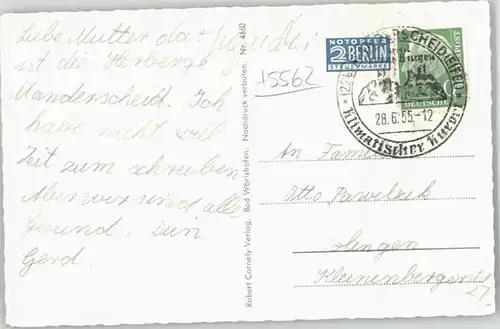 Liebe Mutter da
ist die Herberge
Manderscheid. Ich
habe nicht viel
Zeit zum schreiben
Aber wir sind alle
Gesund. Dein
Gerd.
Robert Cornely Verlag, Bad Wörishofen. Nachdruck verboten. Nr. 4660
15562
NOTOPFER
2 BERLIN
STEUERMARKE
POST
DEUTSCHE
MANDERSCHEID (EIFEL)
Burgen
28.6.55-12
Klimatischer Kurort
An Familie
Otto Pawelzik
Kleinenbergerstr
27